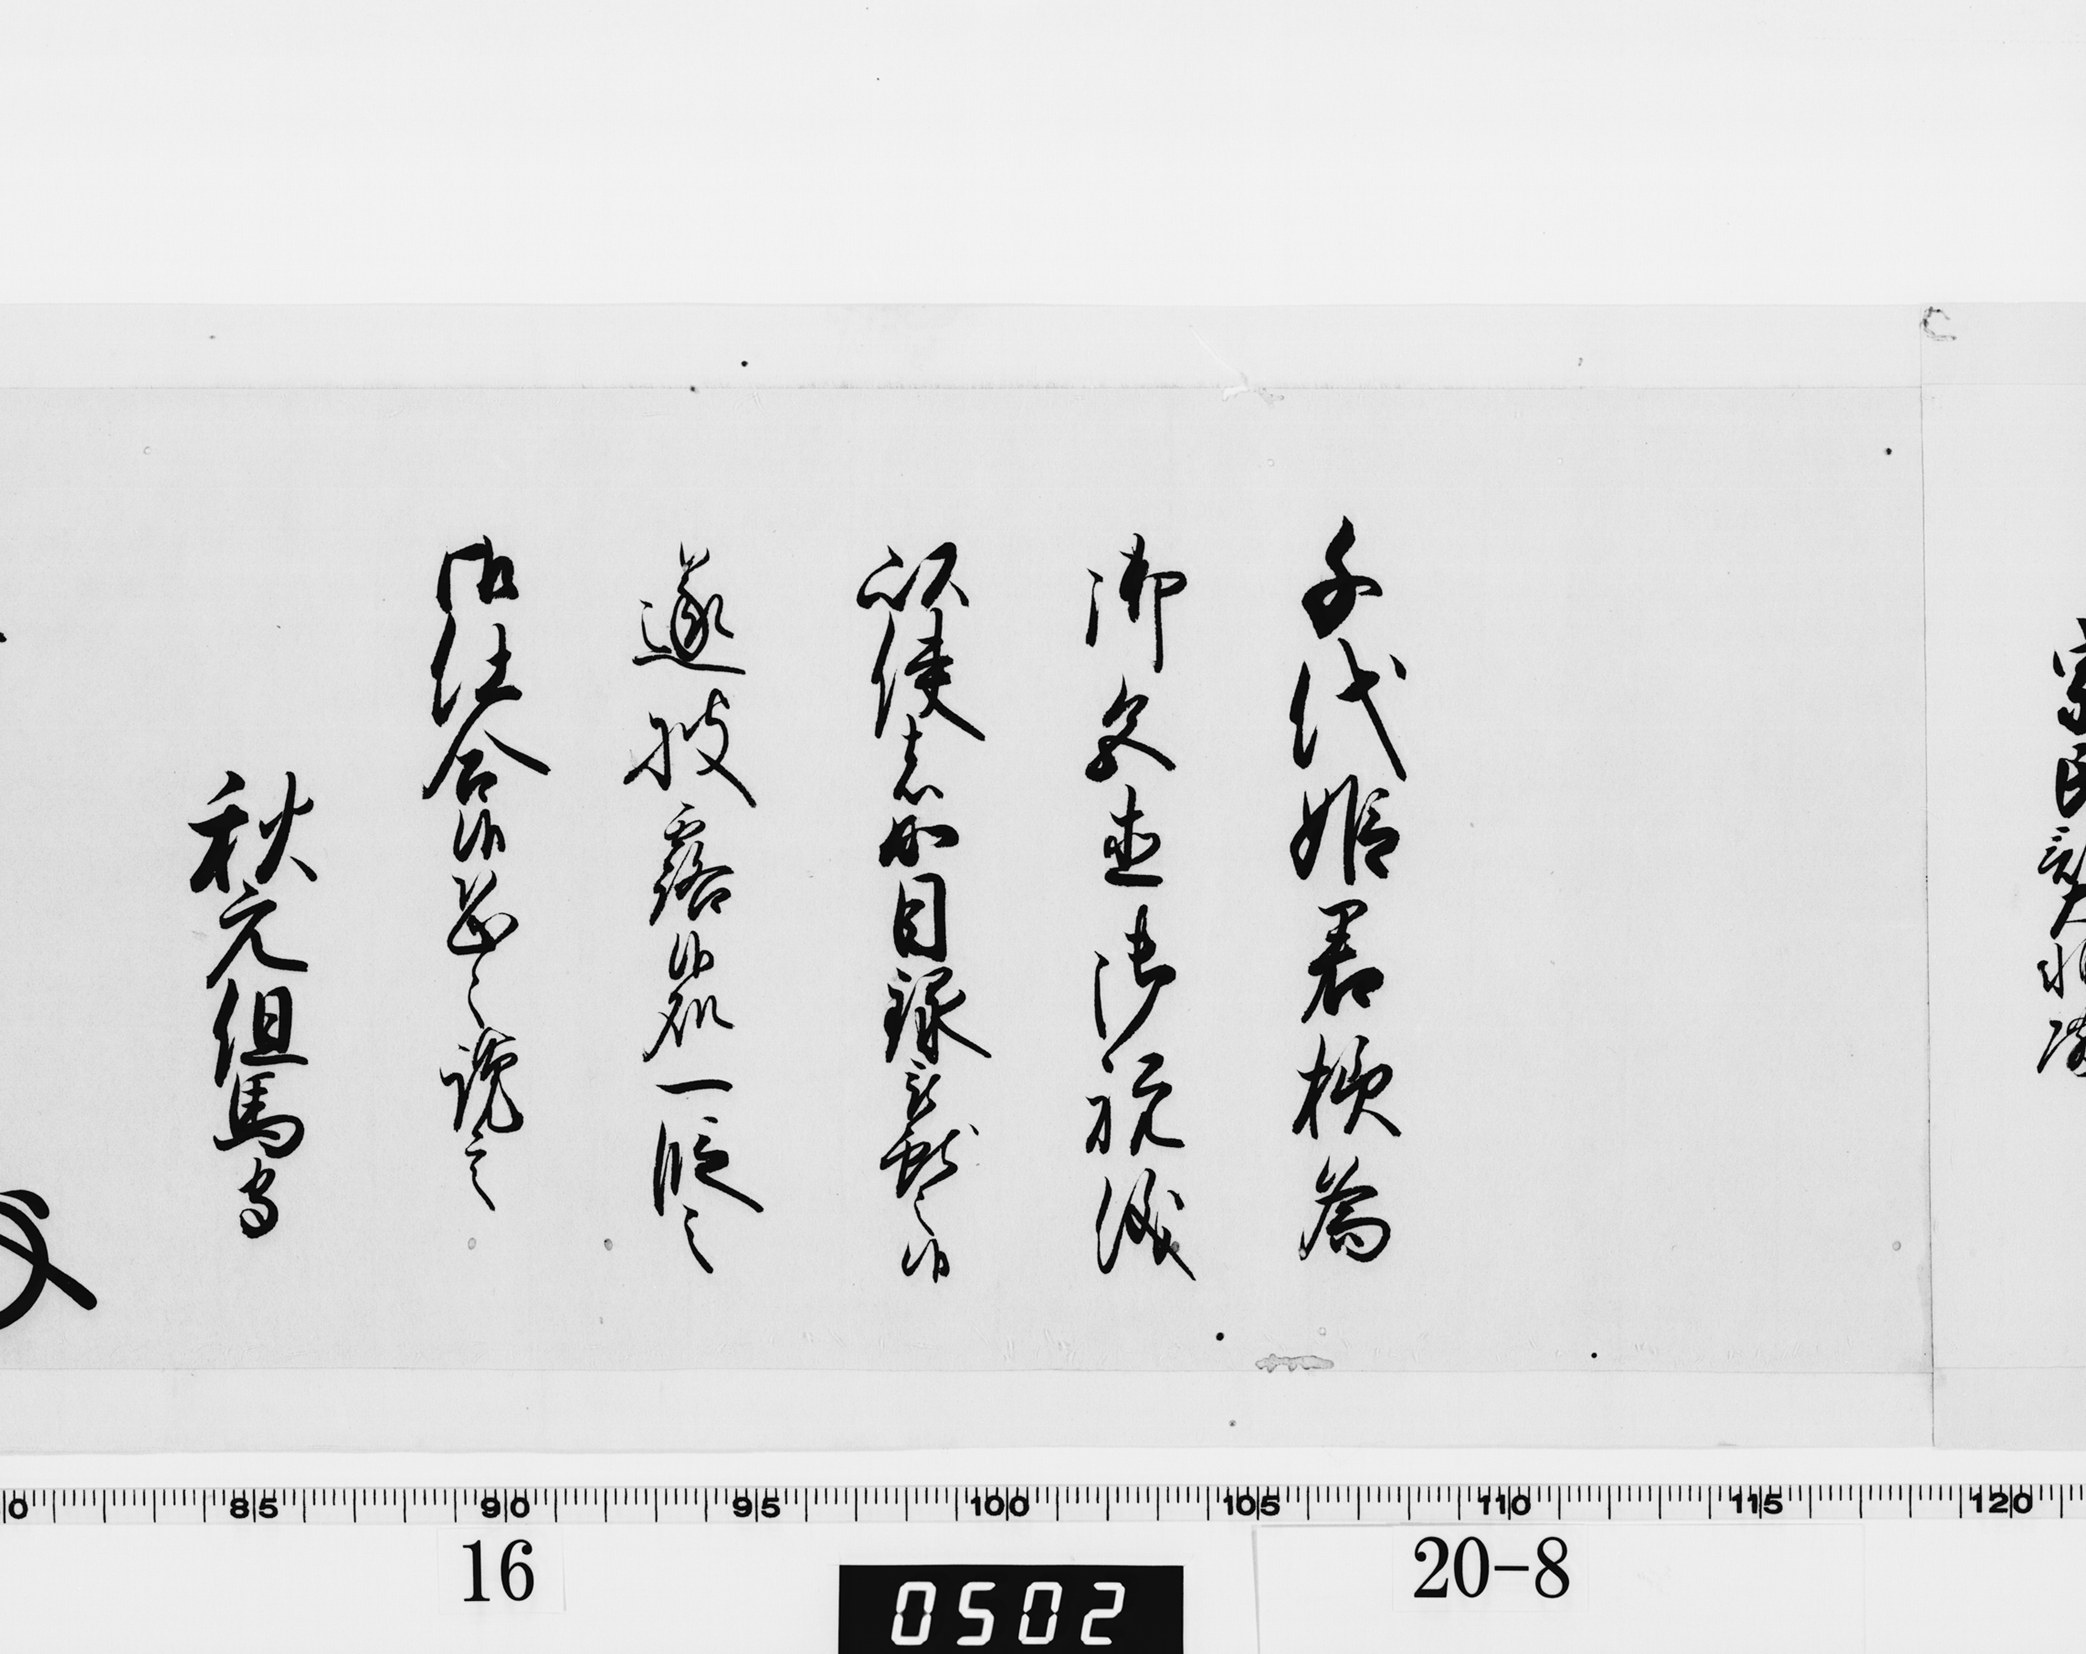 千代姫君様為
御色直御祝儀
以使者如目録被献之候
遂披露候処一段之
御仕合候恐々謹言
秋元但馬守
0 85 90 95 100 105 110 115 120
16
20-8
0502